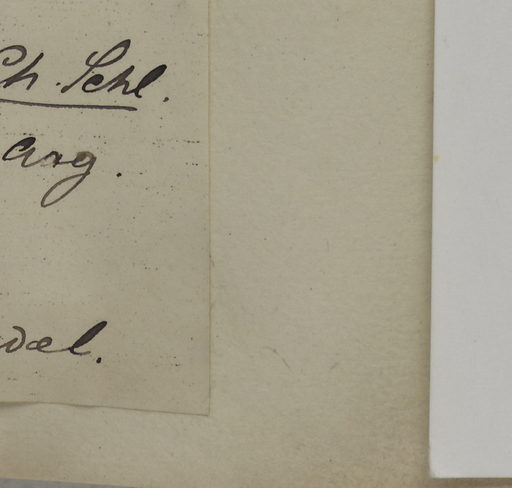 Ch. Schl.
Arg.
dal.